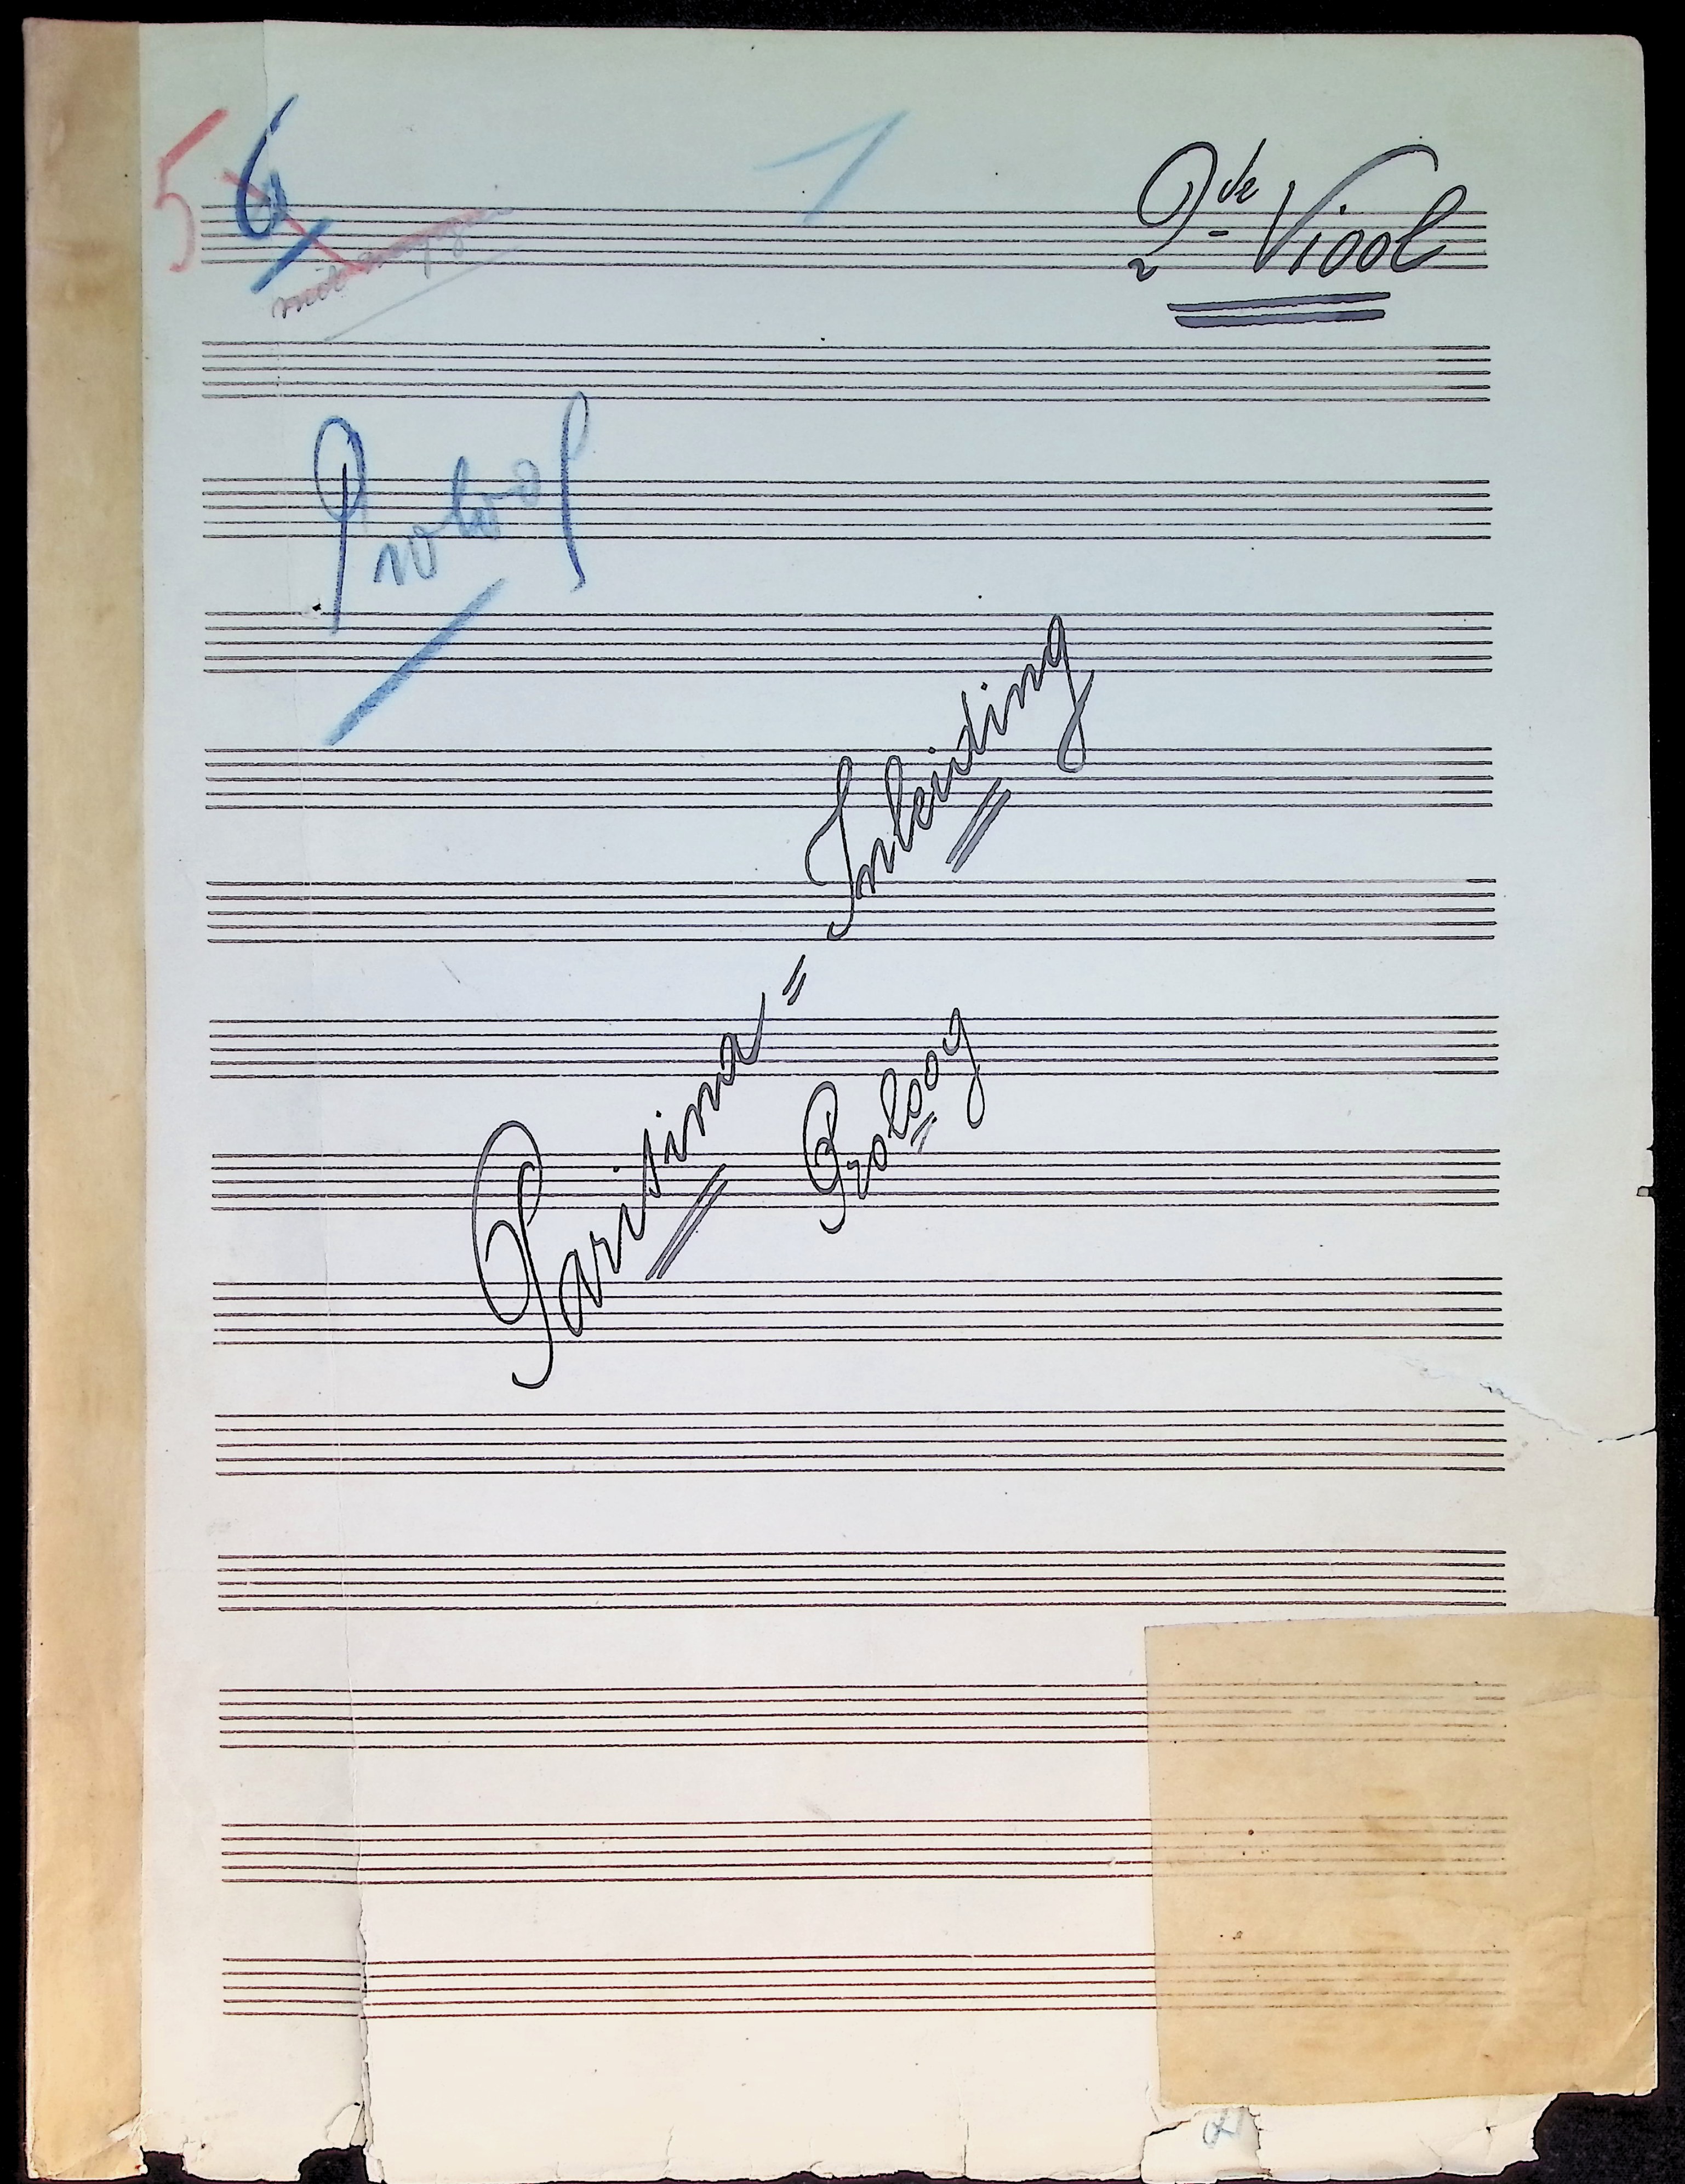 5 6 1
2de Viool
Proloog
Parisina = Inleiding
Proloog